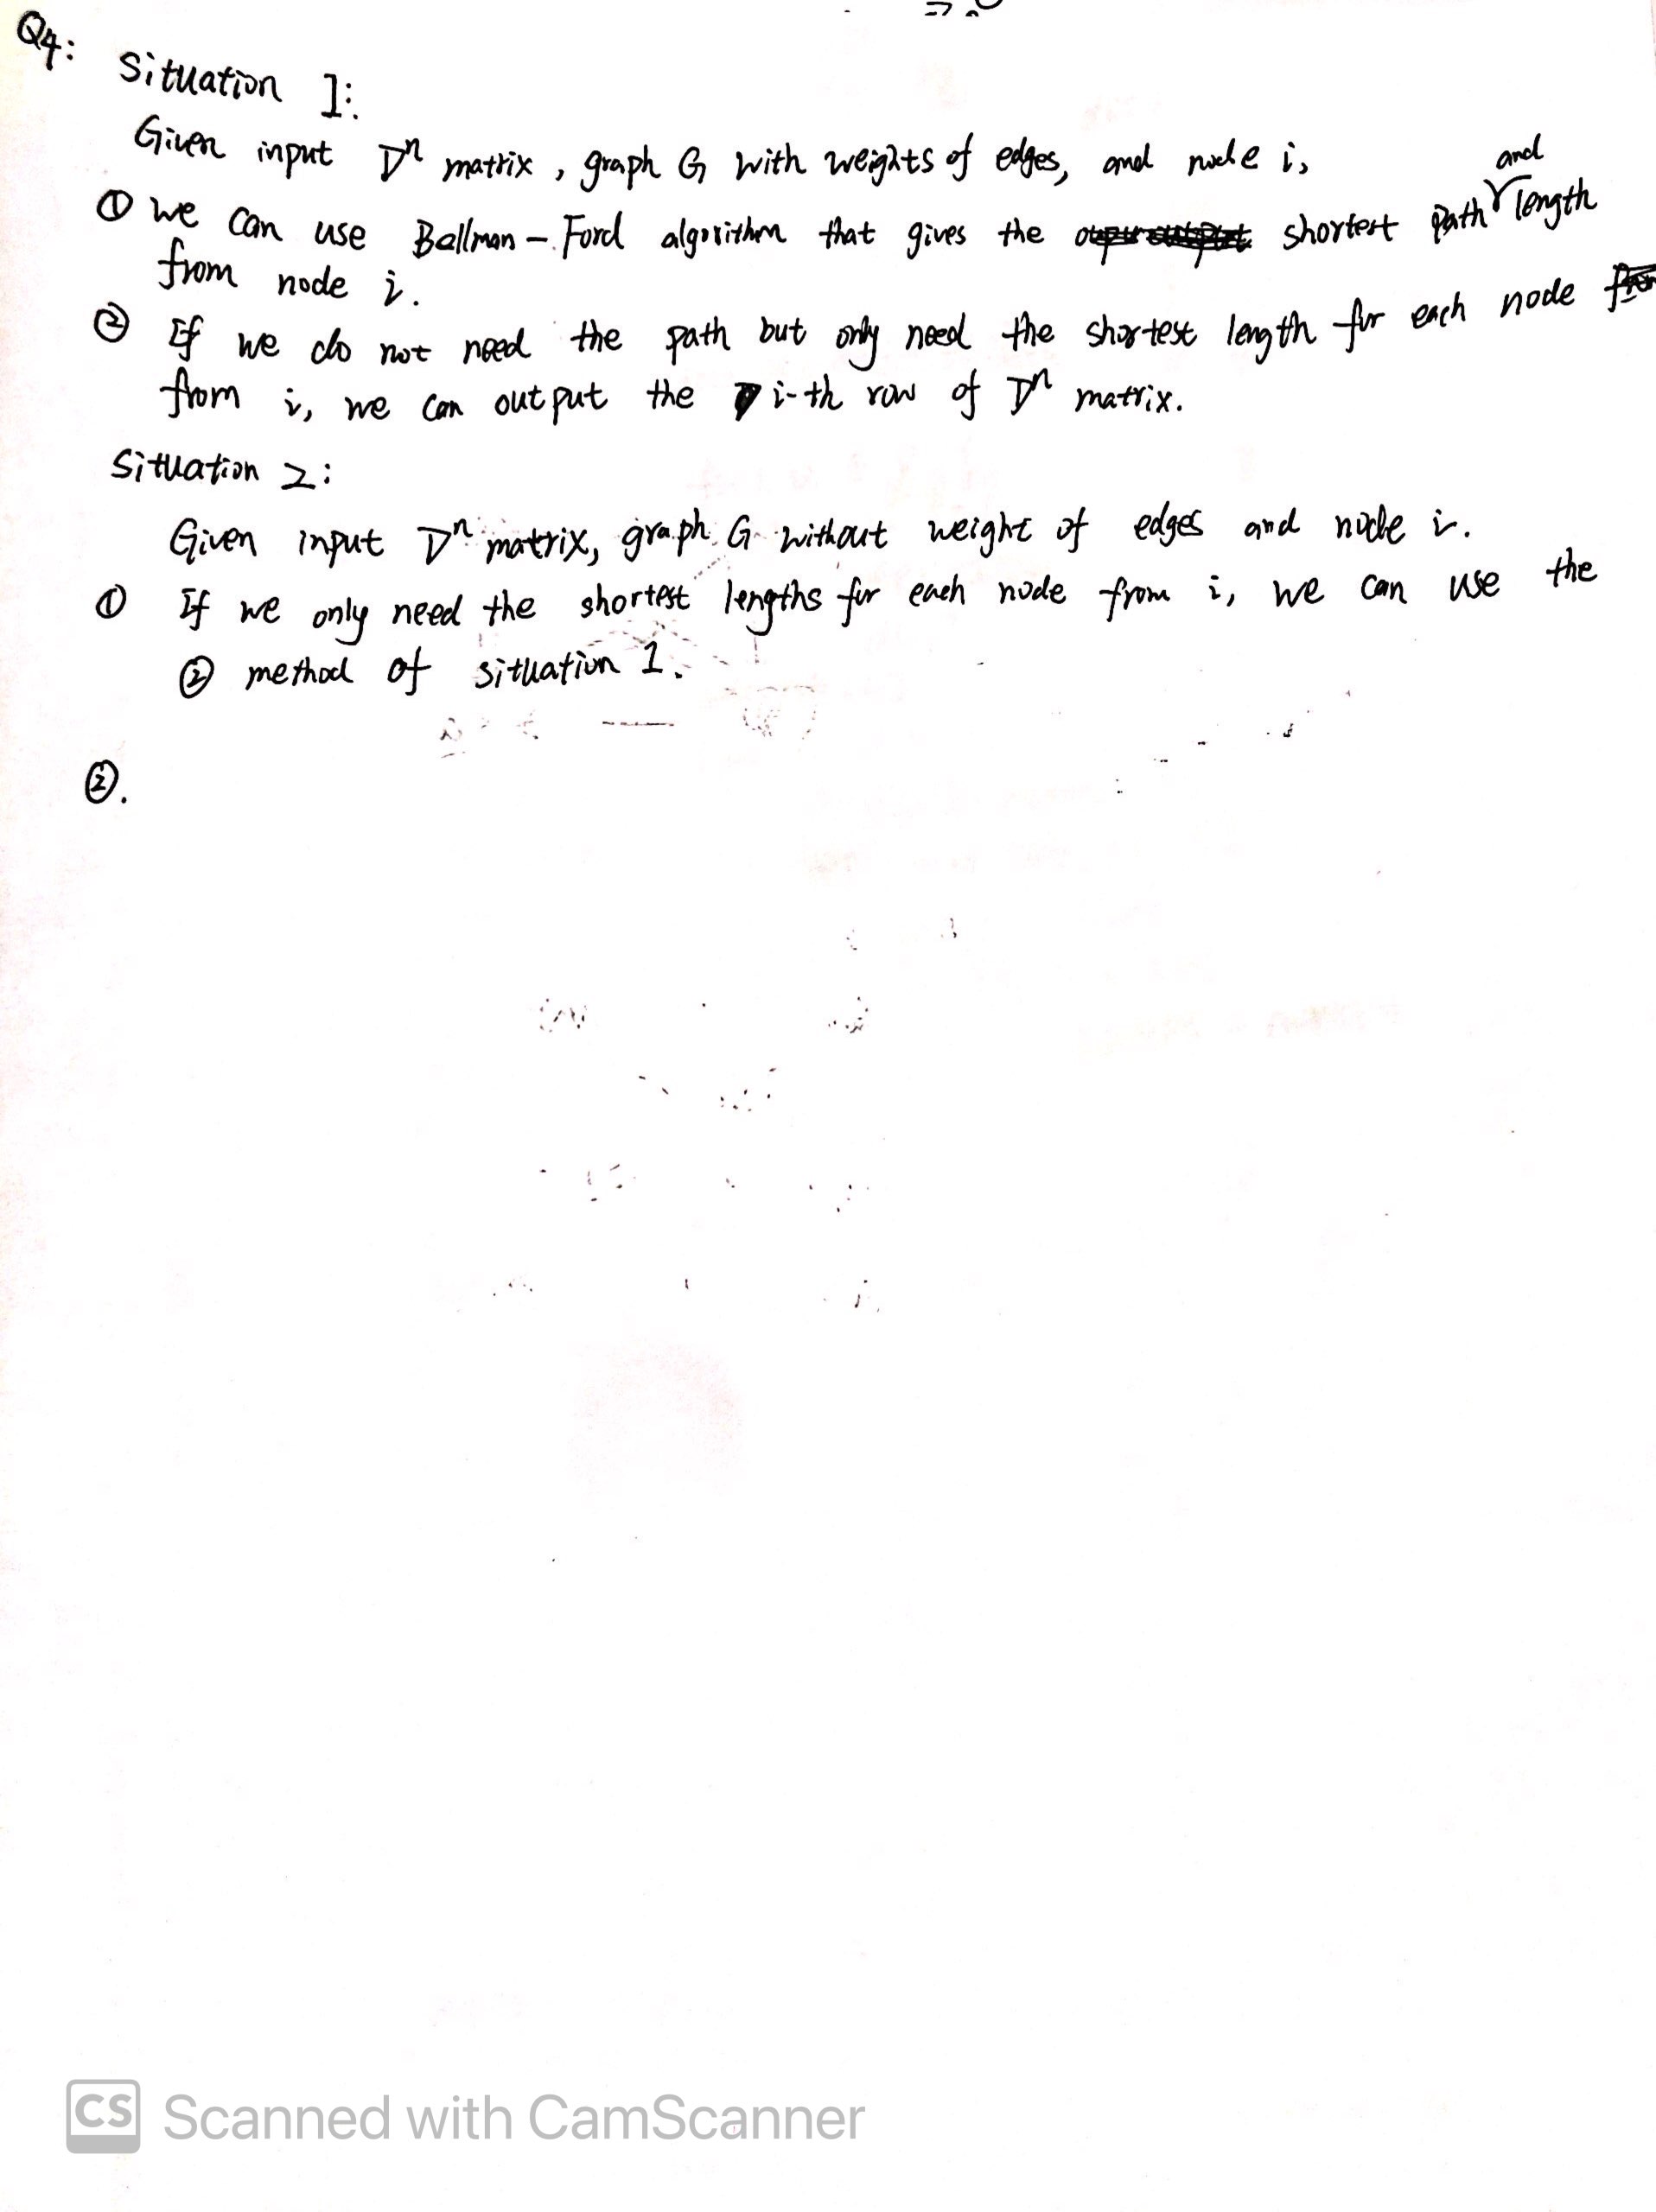 Q4: Situation 1:
Given input Dⁿ matrix, graph G with weights of edges, and node i,
① we can use Bellman-Ford algorithm that gives the shortest path and length
from node i.
② If we do not need the path but only need the shortest length for each node
from i, we can output the i-th row of Dⁿ matrix.
Situation 2:
Given input Dⁿ matrix, graph G without weight of edges and node i.
① If we only need the shortest lengths for each node from i, we can use the
② method of situation 1.
②.
CS Scanned with CamScanner